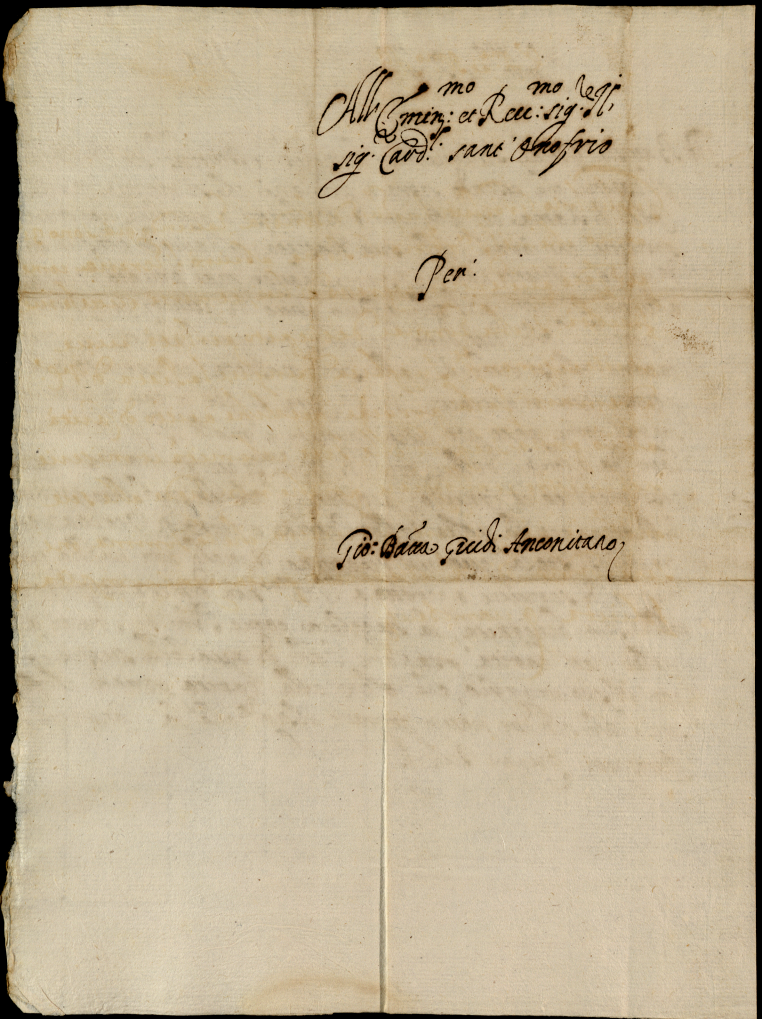 All' Emin:mo et Reu:mo sig. et
sig. Card.l sant' Onofrio
Per:
Gio: Batta Guidi Anconitano